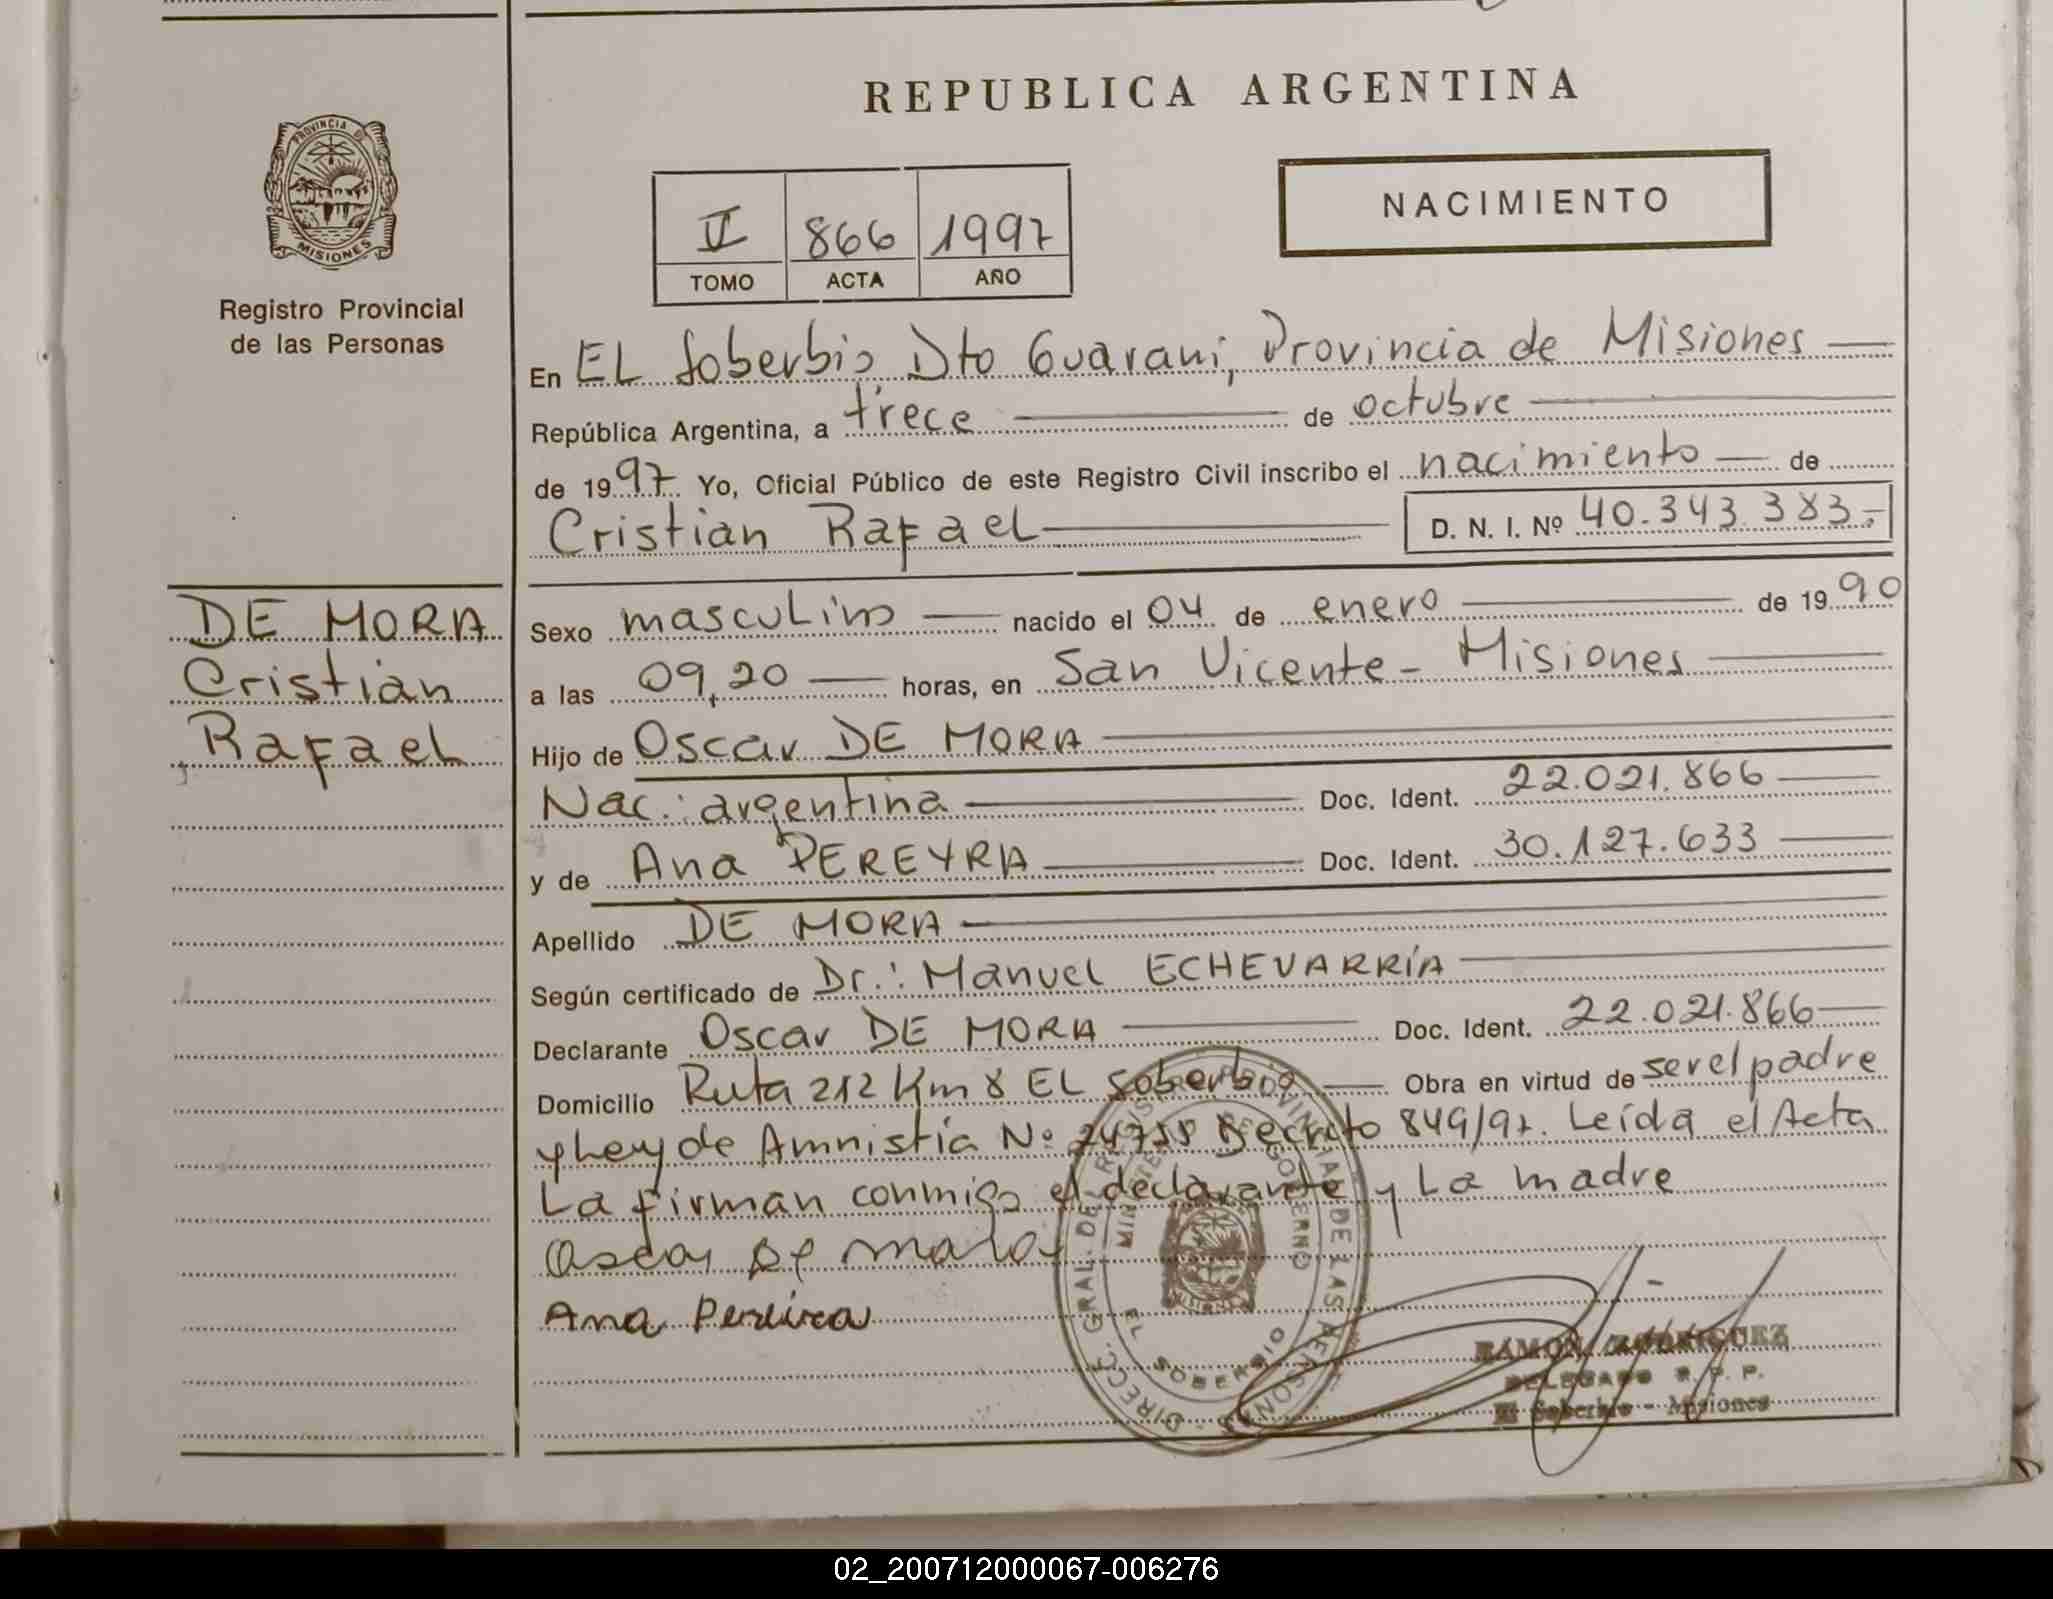 REPUBLICA ARGENTINA
PROVINCIA DE
MISIONES
Registro Provincial
de las Personas
NACIMIENTO
V 866 1997
TOMO ACTA AÑO
En EL Soberbio Dto Guarani, Provincia de Misiones
República Argentina, a trece de octubre
de 1997 Yo, Oficial Público de este Registro Civil inscribo el nacimiento de
Cristian Rafael D. N. I. Nº 40.343.383,-
DE MORA
Cristian
Rafael
Sexo masculino nacido el 04 de enero de 1990
a las 09,20 horas, en San Vicente - Misiones
Hijo de Oscar DE MORA
Nac.: argentina Doc. Ident. 22.021.866
y de Ana PEREYRA Doc. Ident. 30.127.633
Apellido DE MORA
Según certificado de Dr.: Manuel ECHEVARRÍA
Declarante Oscar DE MORA Doc. Ident. 22.021.866
Domicilio Ruta 212 Km 8 EL Soberbio Obra en virtud de ser el padre
y Ley de Amnistía Nº 24755 Decreto 849/97. Leída el Acta
La firman conmigo el declarante y La madre
Oscar De mora
Ana Pereira
DIRECC. GRAL. DEL REGISTRO PROVINCIAL DE LAS PERSONAS
MINISTERIO DE GOBIERNO
EL SOBERBIO
RAMON RODRIGUEZ
DELEGADO R. P. P.
El Soberbio - Misiones
02_200712000067-006276